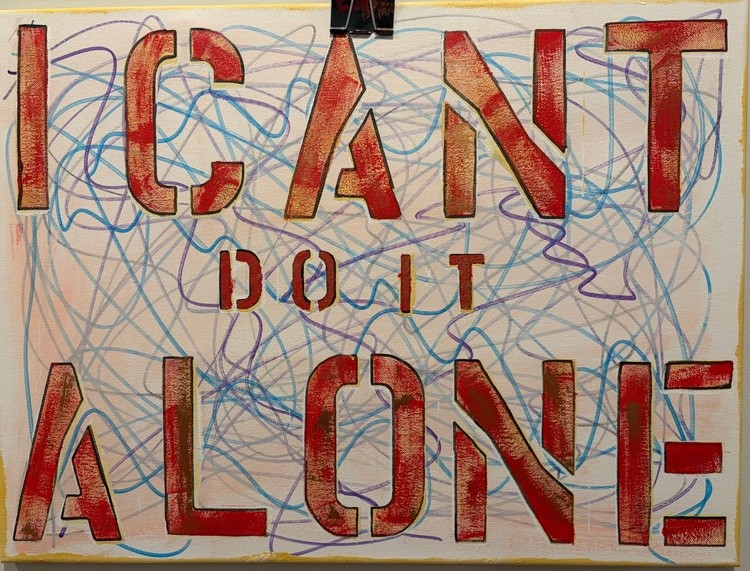 I CANT
DO IT
ALONE